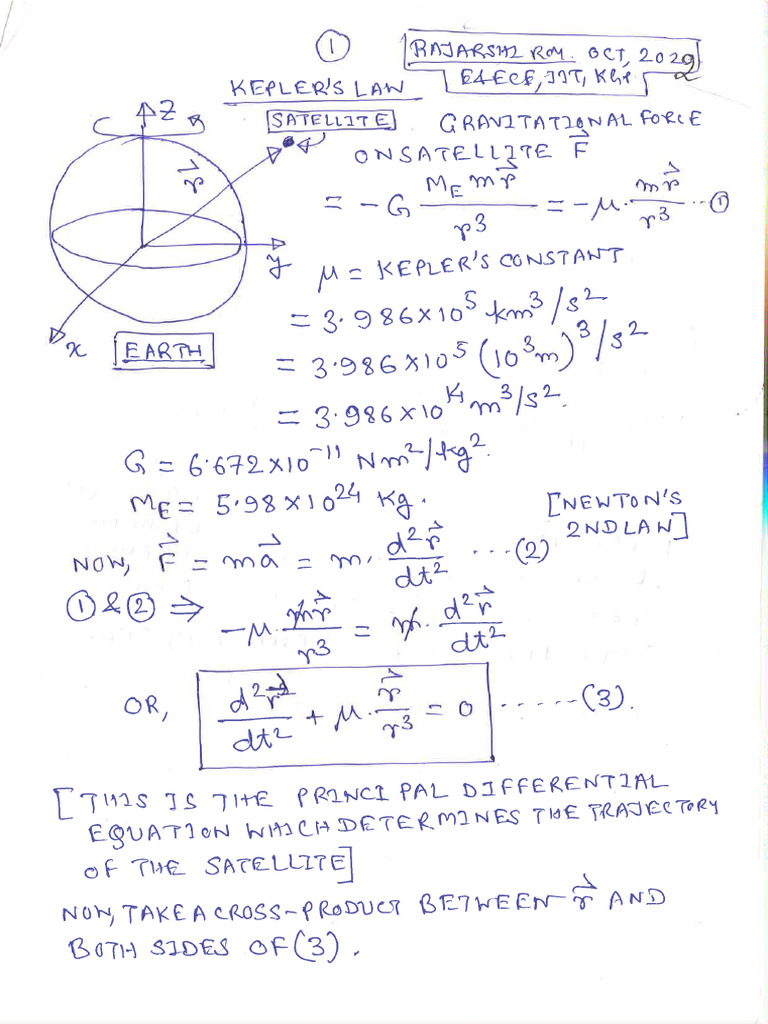 ①
RAJARSHI ROY. OCT, 2022
E&ECE, IIT, KGP
KEPLER'S LAW
Z
SATELLITE
GRAVITATIONAL FORCE
ON SATELLITE F⃗
r⃗
= -G M_E m r⃗ / r³ = -μ · m r⃗ / r³ ... ①
y
μ = KEPLER'S CONSTANT
= 3.986×10⁵ km³/s²
x
EARTH
= 3.986×10⁵ (10³m)³/s²
= 3.986×10¹⁴ m³/s².
G = 6.672×10⁻¹¹ Nm²/kg².
M_E = 5.98×10²⁴ Kg.
[NEWTON'S
2ND LAW]
NOW, F⃗ = ma⃗ = m · d²r⃗/dt² ... (2)
① & ② ⇒ -μ · m r⃗ / r³ = m · d²r⃗/dt²
OR, d²r⃗/dt² + μ · r⃗/r³ = 0 ...... (3).
[THIS IS THE PRINCIPAL DIFFERENTIAL
EQUATION WHICH DETERMINES THE TRAJECTORY
OF THE SATELLITE]
NOW, TAKE A CROSS-PRODUCT BETWEEN r⃗ AND
BOTH SIDES OF (3).